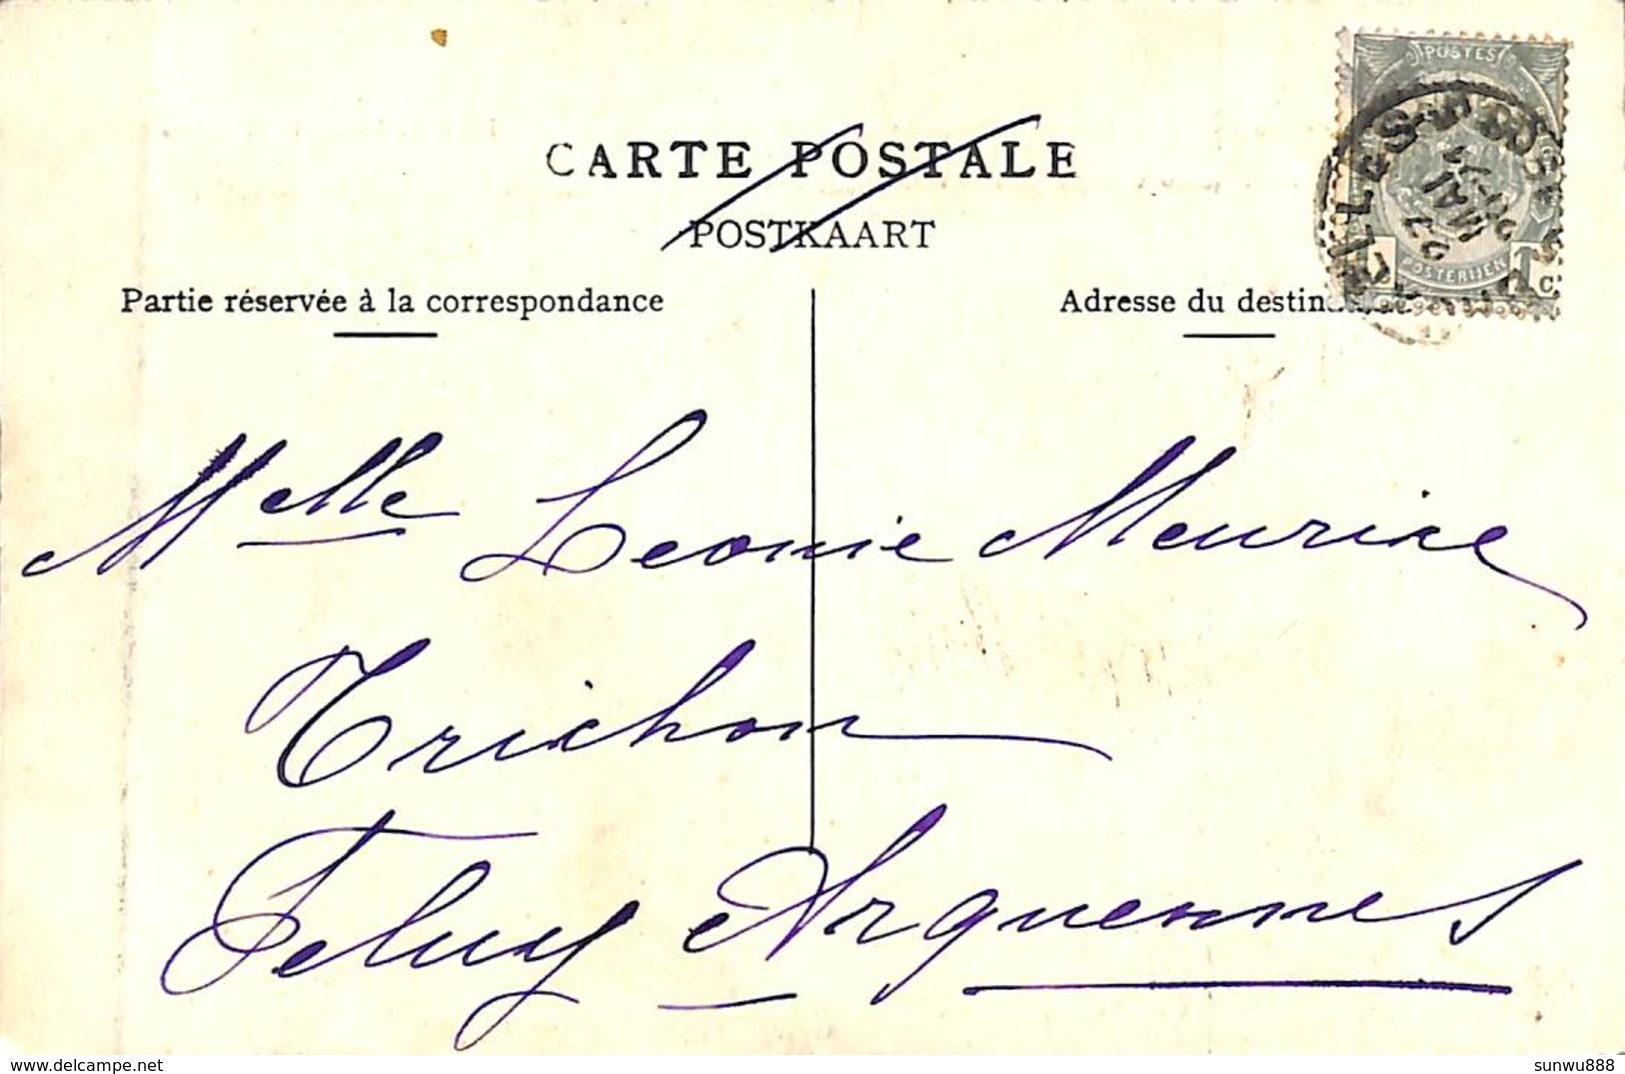 CARTE POSTALE
POSTKAART
Partie réservée à la correspondance
Adresse du
POSTES
MAI
POSTERIJEN
1 C.
Melle Leonie Meurice
Trichon
Feluy - Arquennes
delcampe.net
sunwu888